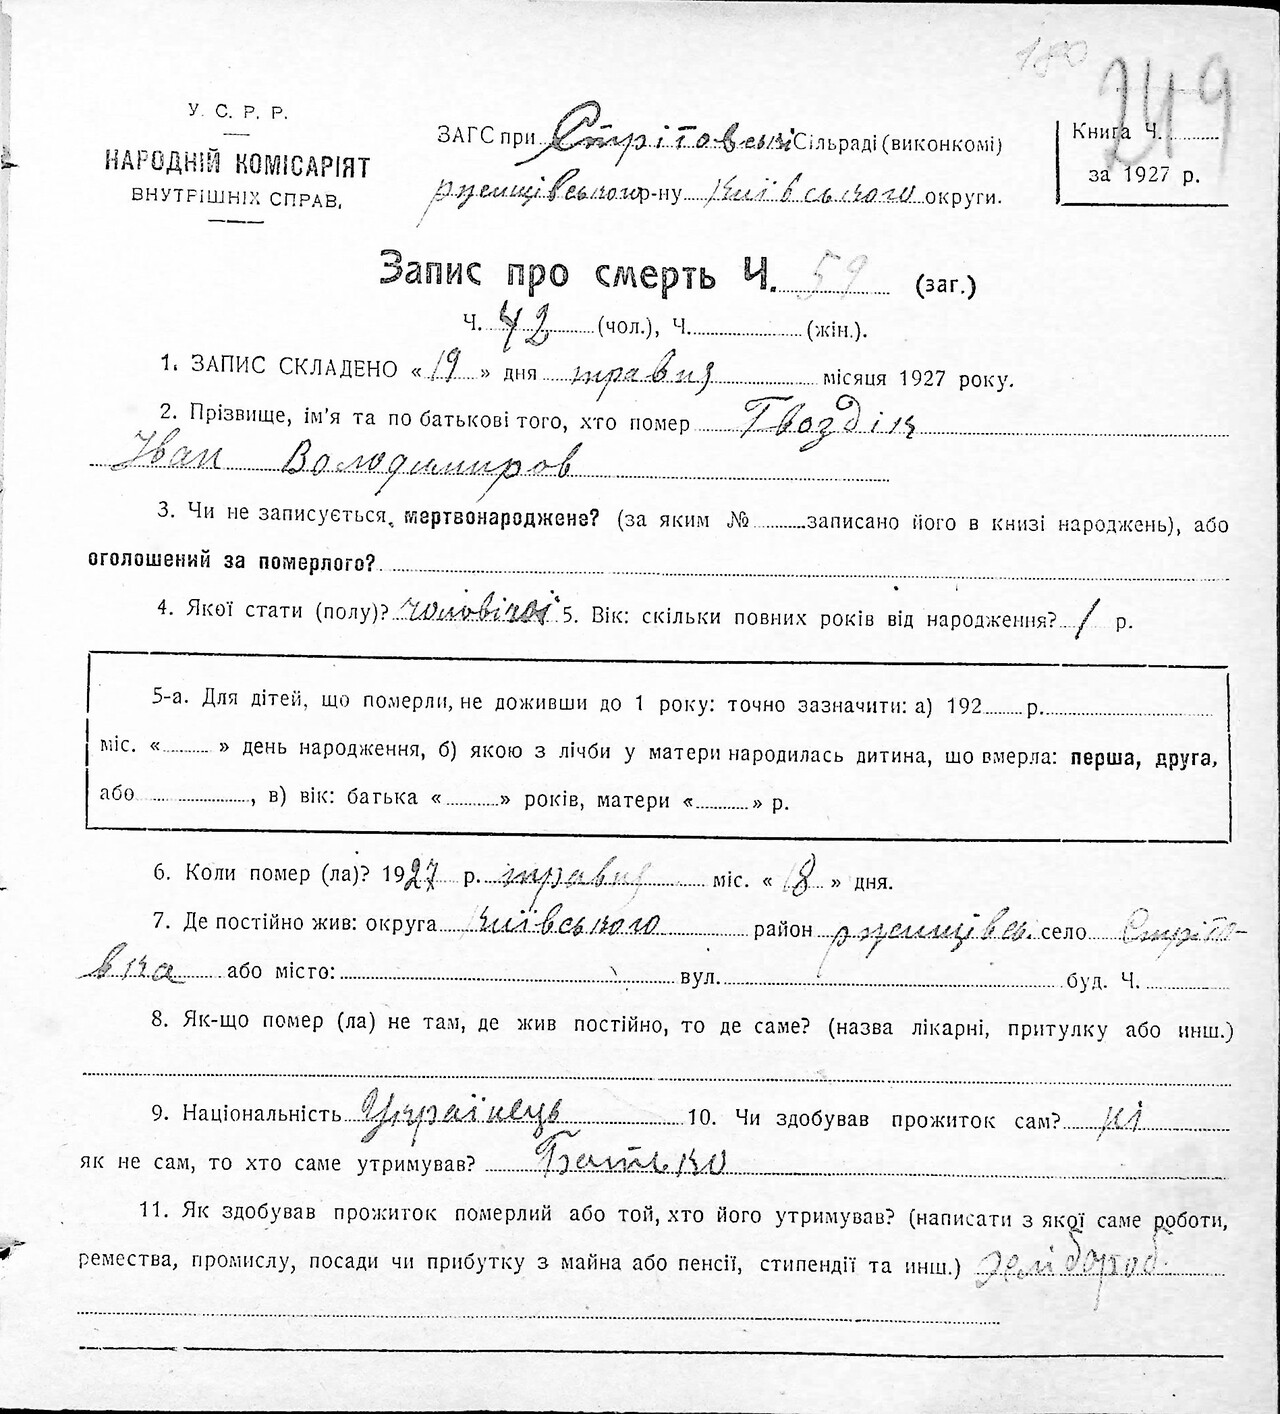 180
249
У. С. Р. Р.
НАРОДНІЙ КОМІСАРІЯТ
ВНУТРІШНІХ СПРАВ.
ЗАГС при Стрітовські Сільраді (виконкомі)
ржищівського р-ну київського округи.
Книга Ч.
за 1927 р.
Запис про смерть Ч. 59 (заг.)
Ч. 42 (чол.), Ч. (жін.).
1. ЗАПИС СКЛАДЕНО « 19 » дня травня місяця 1927 року.
2. Прізвище, ім'я та по батькові того, хто помер Гвоздік
Іван Володимиров
3. Чи не записується, мертвонароджене? (за яким № записано його в книзі народжень), або
оголошений за померлого?
4. Якої стати (полу)? чоловічої 5. Вік: скільки повних років від народження? 1 р.
5-а. Для дітей, що померли, не доживши до 1 року: точно зазначити: а) 192 р.
міс. « » день народження, б) якою з лічби у матери народилась дитина, що вмерла: перша, друга,
або , в) вік: батька « » років, матери « » р.
6. Коли помер (ла)? 1927 р. травня міс. « 18 » дня.
7. Де постійно жив: округа київського район ржищівсь. село Стріто-
вка або місто: вул. буд. Ч.
8. Як-що помер (ла) не там, де жив постійно, то де саме? (назва лікарні, притулку або инш.)
9. Національність Українець 10. Чи здобував прожиток сам? ні
як не сам, то хто саме утримував? Батько
11. Як здобував прожиток померлий або той, хто його утримував? (написати з якої саме роботи,
ремества, промислу, посади чи прибутку з майна або пенсії, стипендії та инш.) хлібороб.